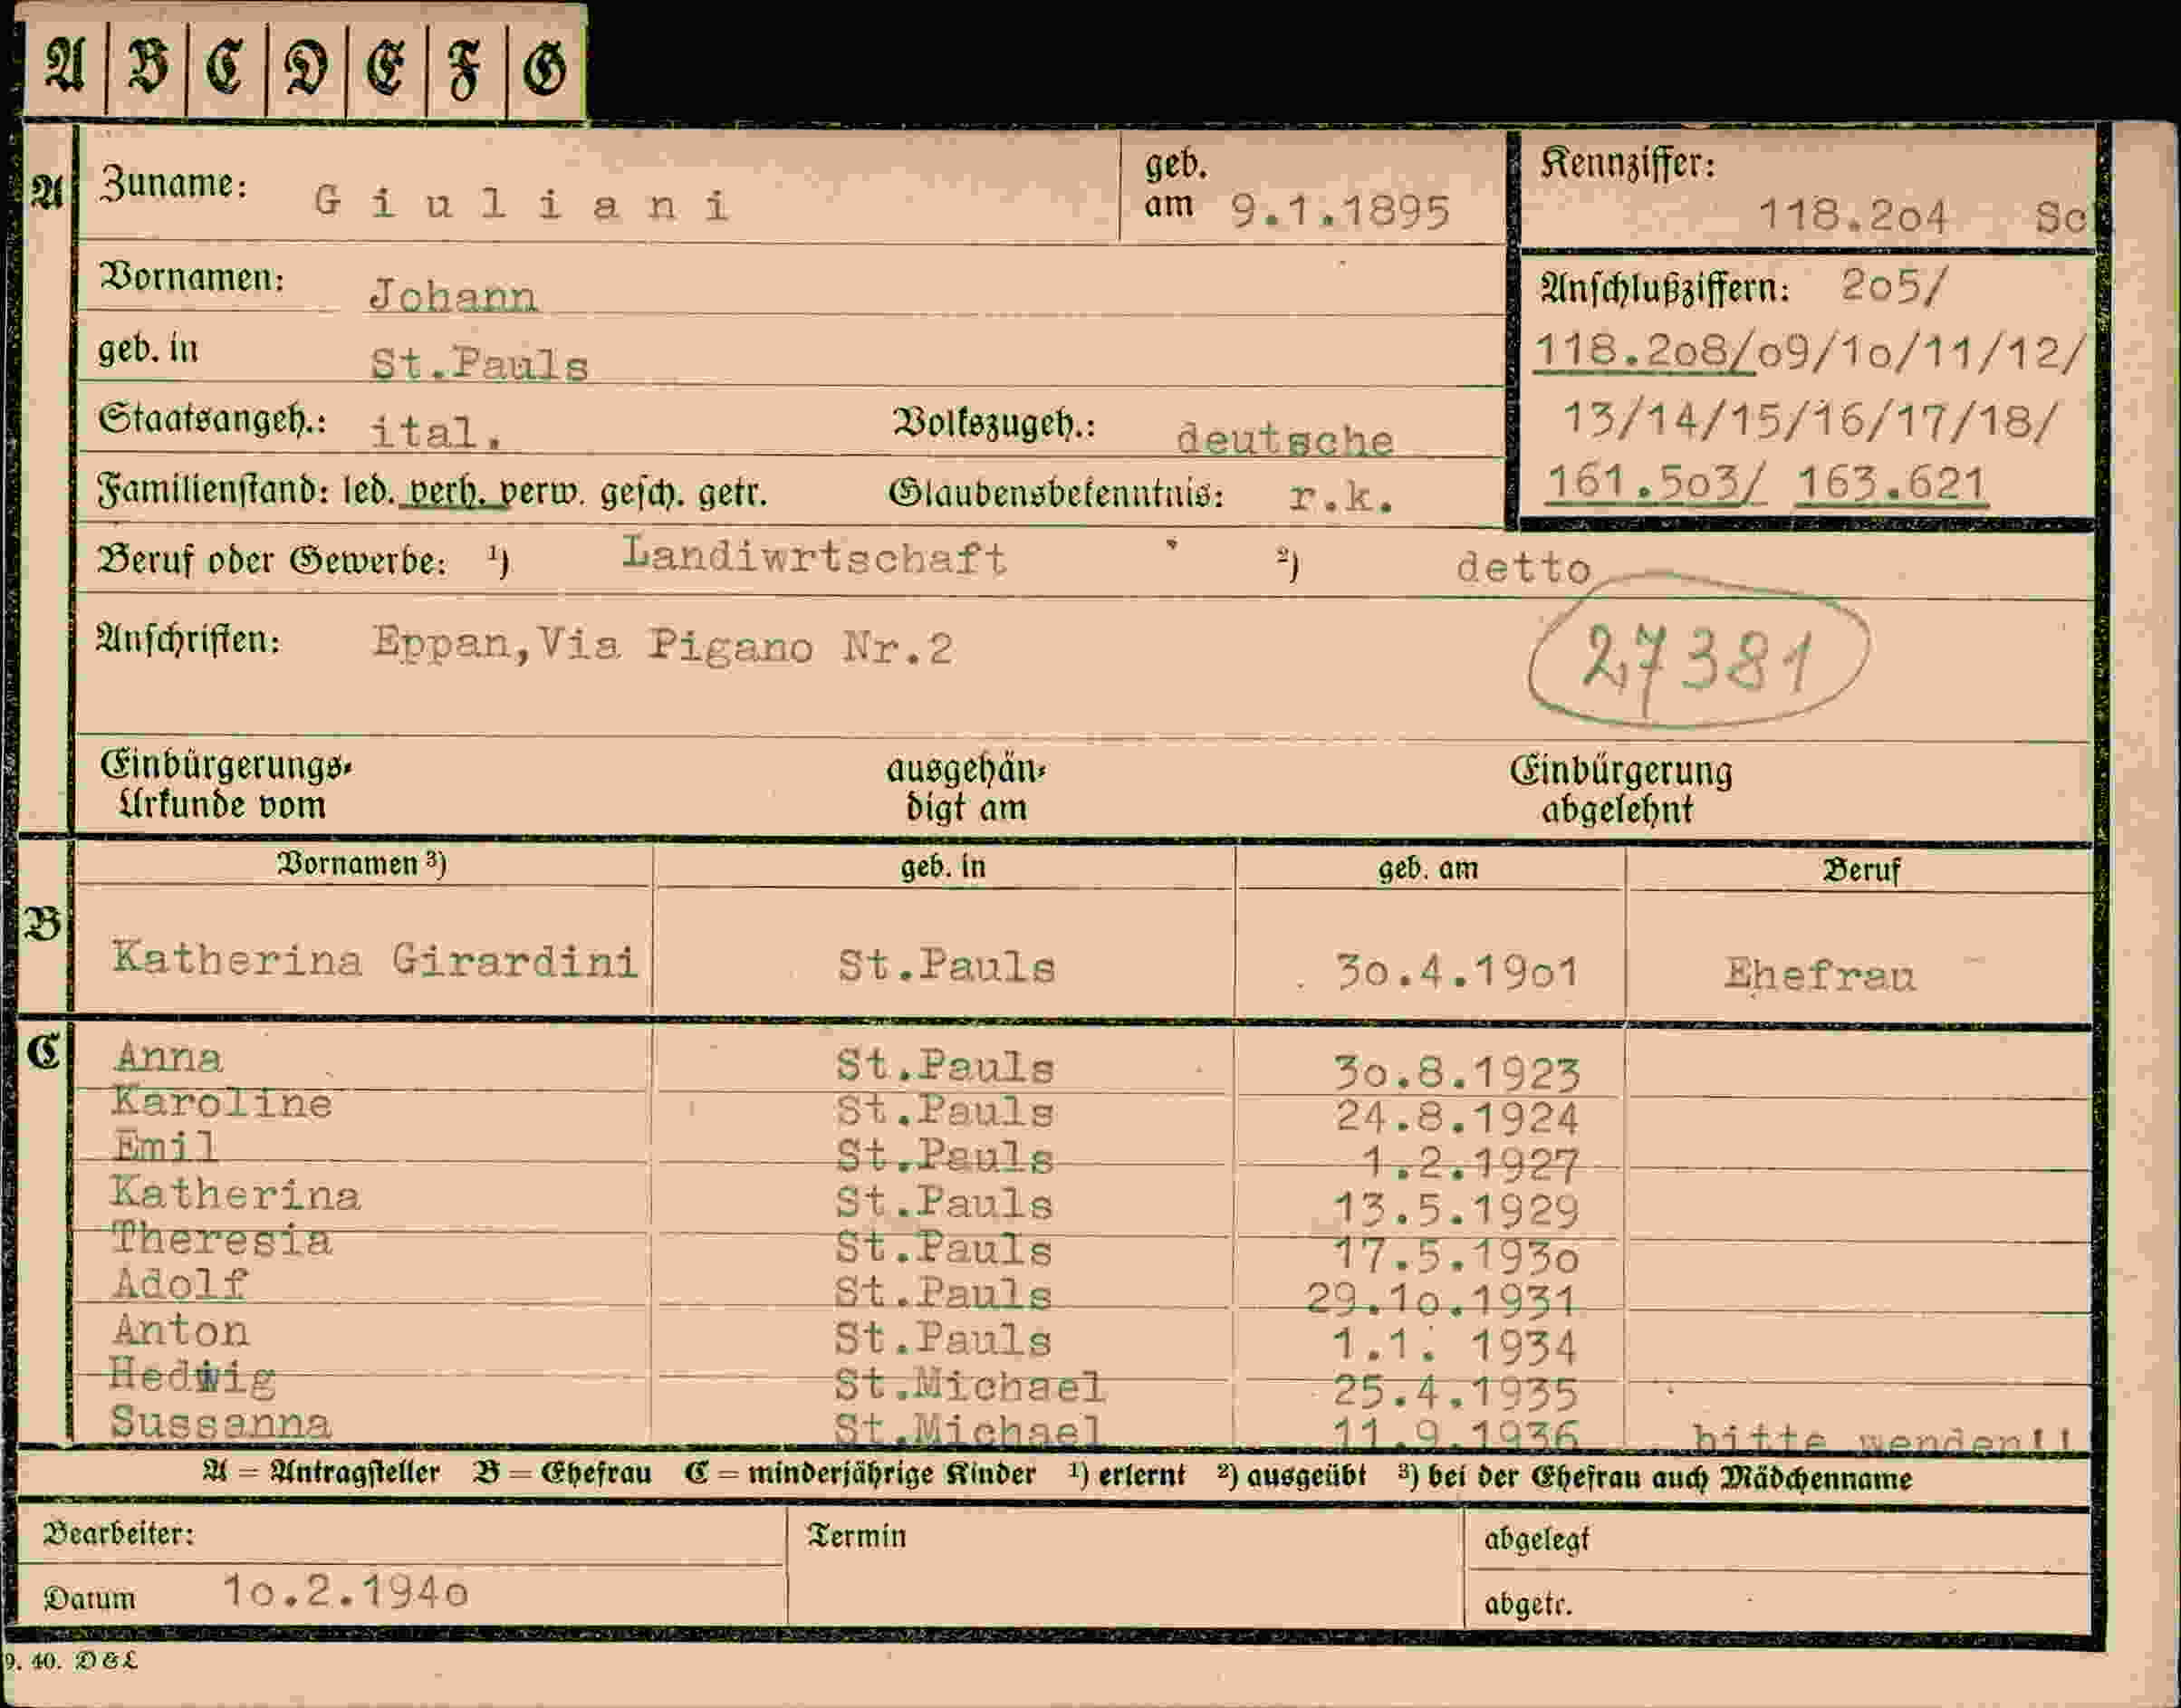 A B C D E F G
A Zuname: Giuliani geb. am 9.1.1895 Kennziffer: 118.2o4 Sc
Vornamen: Johann Anschlußziffern: 2o5/
geb. in St.Pauls 118.2o8/o9/1o/11/12/
Staatsangeh.: ital. Volkszugeh.: deutsche 13/14/15/16/17/18/
Familienstand: led. verh. verw. gesch. getr. Glaubensbekenntnis: r.k. 161.5o3/ 163.621
Beruf oder Gewerbe: ¹) Landiwrtschaft ²) detto
Anschriften: Eppan,Via Pigano Nr.2 27381
Einbürgerungs- ausgehän- Einbürgerung
Urkunde vom digt am abgelehnt
Vornamen ³) geb. in geb. am Beruf
B Katherina Girardini St.Pauls 3o.4.19o1 Ehefrau
C Anna St.Pauls 3o.8.1923
Karoline St.Pauls 24.8.1924
Emil St.Pauls 1.2.1927
Katherina St.Pauls 13.5.1929
Theresia St.Pauls 17.5.193o
Adolf St.Pauls 29.1o.1931
Anton St.Pauls 1.1. 1934
Hedwig St.Michael 25.4.1935
Sussanna St.Michael 11.9.1936 bitte wenden!!
A = Antragsteller B = Ehefrau C = minderjährige Kinder ¹) erlernt ²) ausgeübt ³) bei der Ehefrau auch Mädchenname
Bearbeiter: Termin abgelegt
Datum 1o.2.194o abgetr.
9. 40. D & L